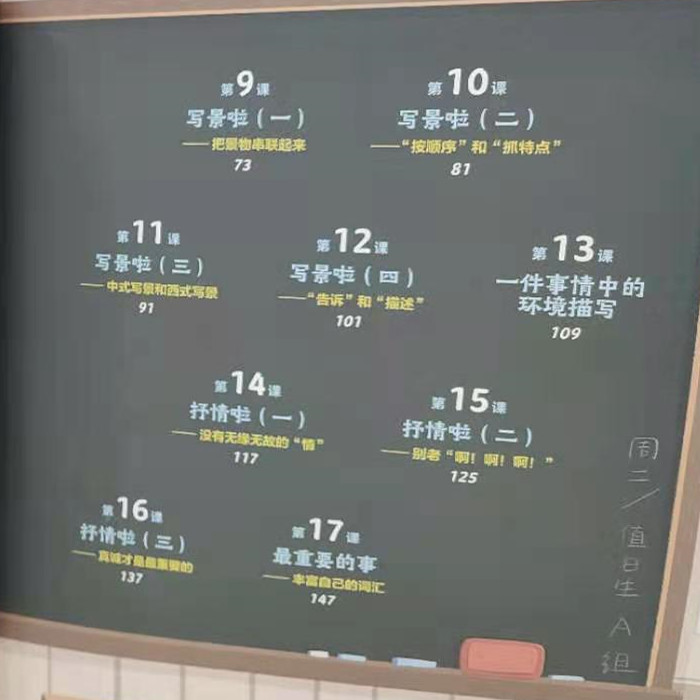 第9课
写景啦（一）
——把景物串联起来
73
第10课
写景啦（二）
——“按顺序”和“抓特点”
81
第11课
写景啦（三）
——中式写景和西式写景
91
第12课
写景啦（四）
——“告诉”和“描述”
101
第13课
一件事情中的
环境描写
109
第14课
抒情啦（一）
——没有无缘无故的“情”
117
第15课
抒情啦（二）
——别老“啊！啊！啊！”
125
第16课
抒情啦（三）
——真诚才是最重要的
137
第17课
最重要的事
——丰富自己的词汇
147
周二／值日生 A 组